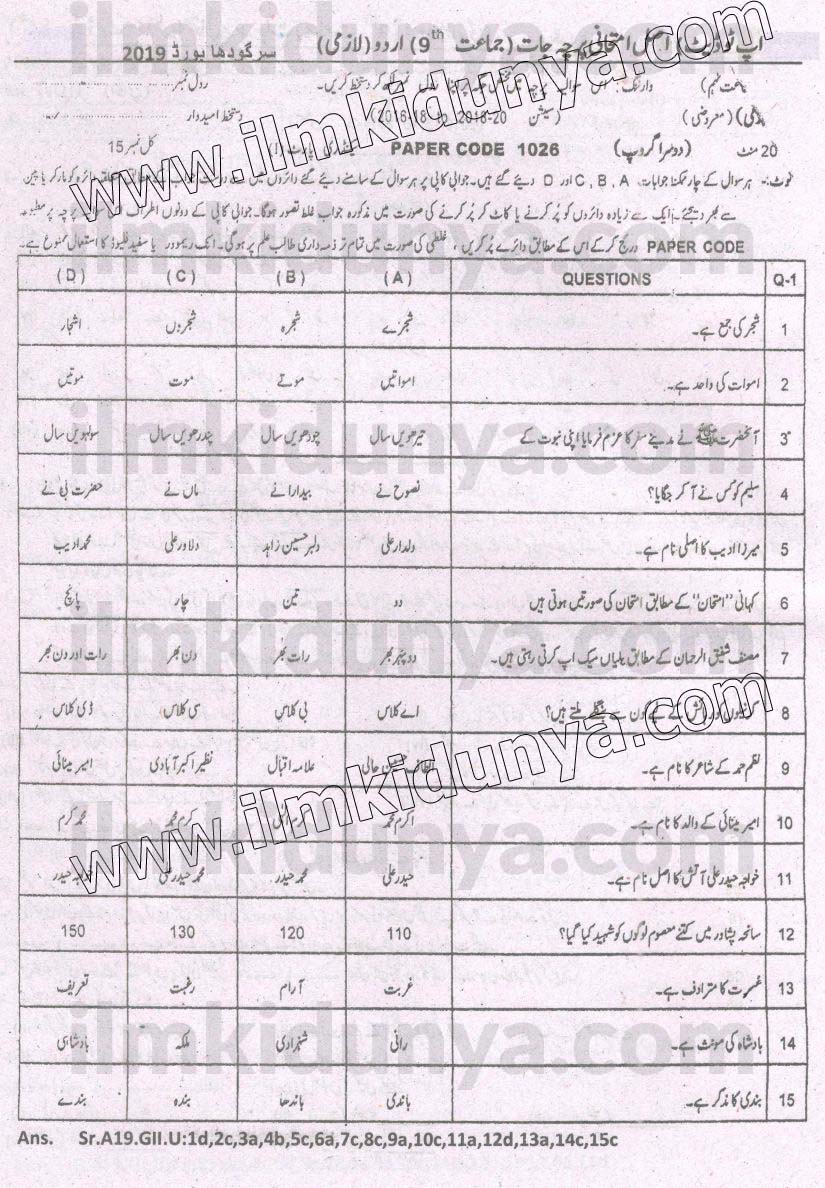 www.ilmkidunya.com
اپ ٹو ڈیٹ اصل امتحانی پرچہ جات (جماعت 9th) اردو (لازمی) سرگودھا بورڈ 2019
رول نمبر
(معروضی) (سیشن 2018-20 to 2016-18) دستخط امیدوار
20 منٹ (دوسرا گروپ) PAPER CODE 1026 کل نمبر 15
نوٹ:- ہر سوال کے چار ممکنہ جوابات A ، B ، C اور D دیئے گئے ہیں۔ جوابی کاپی پر ہر سوال کے سامنے دیئے گئے دائروں میں سے درست جواب کے دائرہ کو مارکر یا پین
سے بھر دیجئے۔ ایک سے زیادہ دائروں کو پُر کرنے یا کاٹ کر پُر کرنے کی صورت میں مذکورہ جواب غلط تصور ہوگا۔ جوابی کاپی کے دونوں اطراف پرچہ پر مطبوعہ
PAPER CODE درج کر کے اس کے مطابق دائرے پُر کریں ، غلطی کی صورت میں تمام تر ذمہ داری طالب علم پر ہوگی۔ انک ریموور یا سفید فلیوڈ کا استعمال ممنوع ہے۔
Q-1 QUESTIONS (A) (B) (C) (D)
1 شجر کی جمع ہے۔ شجرے شجرہ شجروں اشجار
2 اموات کی واحد ہے۔ امواتیں موتے موت موتیں
3 آنحضرت ﷺ نے مدینے سفر کا عزم فرمایا اپنی نبوت کے تیرھویں سال چودھویں سال پندرھویں سال سولہویں سال
4 سلیم کو کس نے آ کر جگایا؟ نصوح نے بیدارا نے ماں نے حضرت بی نے
5 میرزا ادیب کا اصلی نام ہے۔ دلدار علی دلبر حسین زاہد دلاور علی محمد ادیب
6 کہانی "امتحان" کے مطابق امتحان کی صورتیں ہوتی ہیں دو تین چار پانچ
7 مصنف شفیق الرحمان کے مطابق بلیاں میک اپ کرتی رہتی ہیں۔ دوپہر بھر رات بھر دن بھر رات اور دن بھر
8 کے لیے کون سے بنگلے ملتے ہیں؟ اے کلاس بی کلاس سی کلاس ڈی کلاس
9 نظم حمد کے شاعر کا نام ہے۔ الطاف حسین حالی علامہ اقبال نظیر اکبر آبادی امیر مینائی
10 امیر مینائی کے والد کا نام ہے۔ اکرم محمد کرم محمد محمد کرم
11 خواجہ حیدر علی آتش کا اصل نام ہے۔ حیدر علی محمد حیدر محمد حیدر علی خواجہ حیدر
12 سانحہ پشاور میں کتنے معصوم لوگوں کو شہید کیا گیا؟ 110 120 130 150
13 عسرت کا مترادف ہے۔ غربت آرام رغبت تعریف
14 بادشاہ کی مونث ہے۔ رانی شہزادی ملکہ بادشاہی
15 بندی کا مذکر ہے۔ باندی باندھا بندہ بندے
Ans. Sr.A19.GII.U:1d,2c,3a,4b,5c,6a,7c,8c,9a,10c,11a,12d,13a,14c,15c
www.ilmkidunya.com
ilmkidunya.com